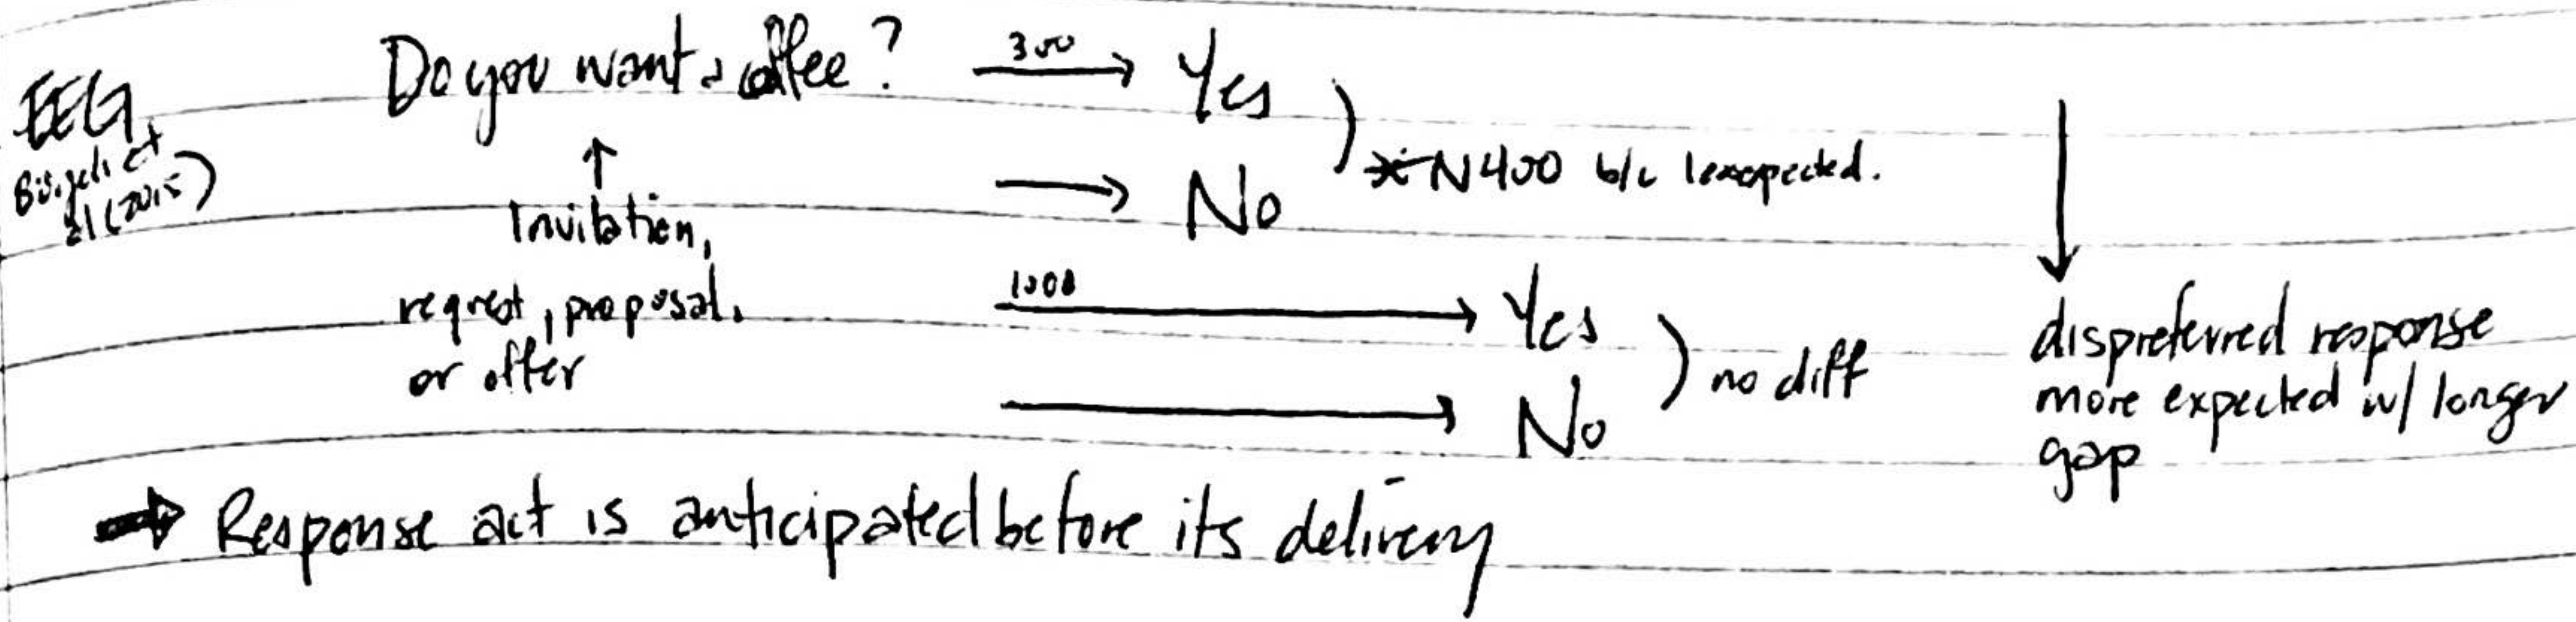 Do you want a coffee? 300 Yes
EEG
Bögels et
al (2015)
No
N400 b/c unexpected.
Invitation,
request, proposal,
or offer
1000 Yes
No
no diff
dispreferred response
more expected w/ longer
gap
Response act is anticipated before its delivery